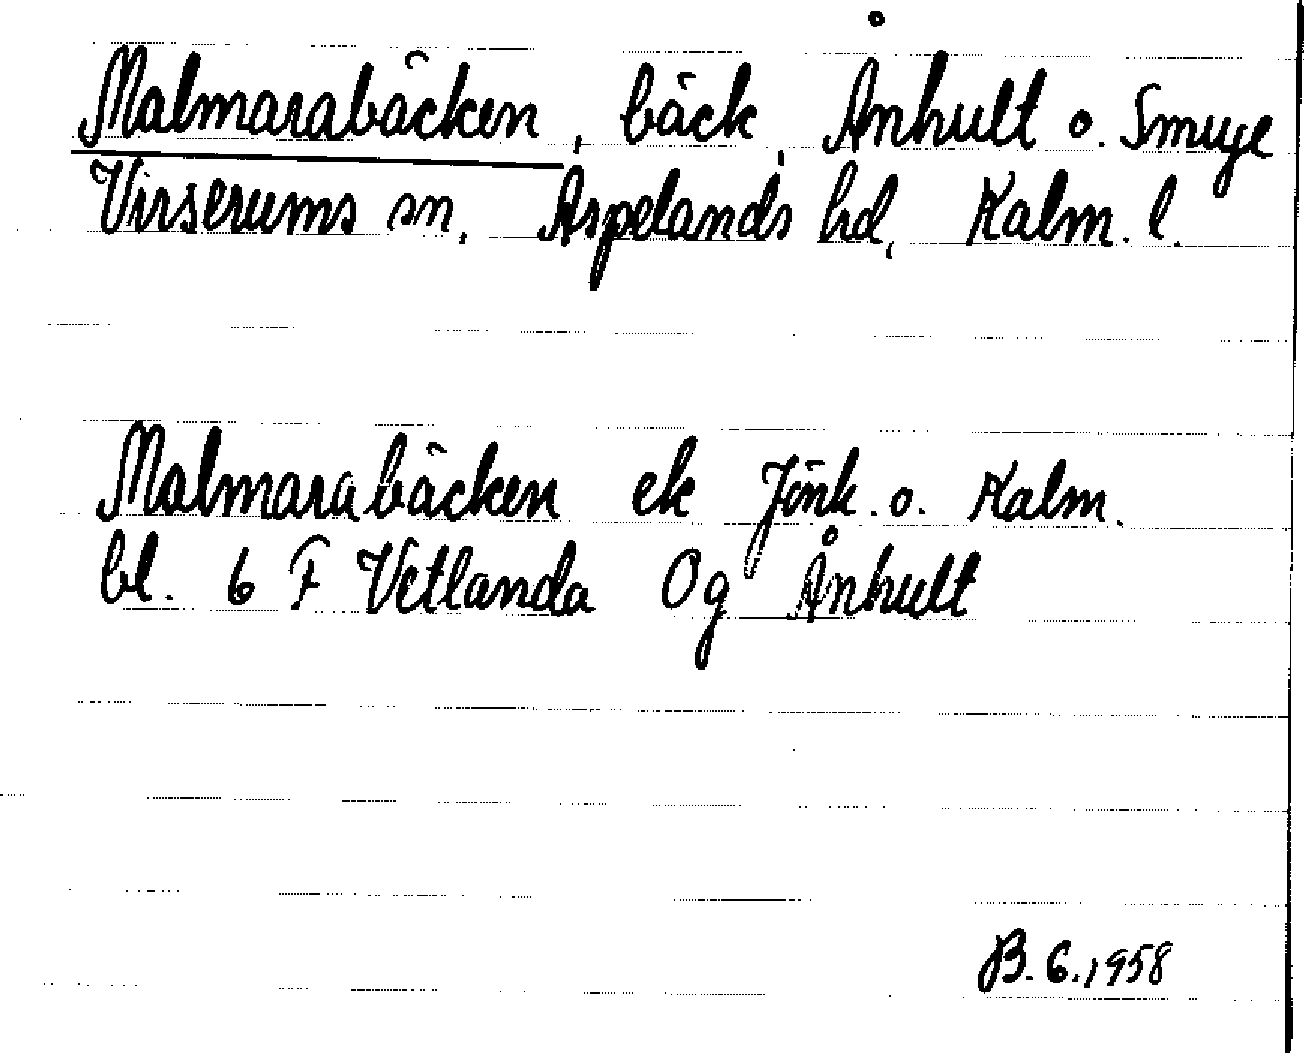 Malmarabäcken, bäck, Ånhult o. Smuge
Virserums sn, Aspelands hd, Kalm. l.
Malmarabäcken ek Jönk. o. Kalm.
bl. 6 F Vetlanda Og Ånhult
B. G. 1958